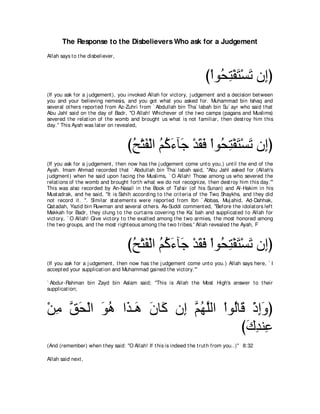 The Response to the Disbelievers Who ask for a Judgement
Allah says to the disbeliever,
(إِن تَسْتَفْتِحُواْ)
(If you ask for a judgement), you invoked Allah for victory, judgement and a decision between
you and your believing nemesis, and you got what you asked for. Muhammad bin Ishaq and
several others reported from Az-Zuhri from `Abdullah bin Tha`labah bin Su`ayr who said that
Abu Jahl said on the day of Badr, "O Allah! Whichever of the two camps (pagans and Muslims)
severed the relation of the womb and brought us what is not familiar, then destroy him this
day." This Ayah was later on revealed,
(إِن تَسْتَفْتِحُواْ فَقَدْ جَآءَكُمُ الْفَتْحُ)
(If you ask for a judgement, then now has the judgement come unto you.) until the end of the
Ayah. Imam Ahmad recorded that `Abdullah bin Tha`labah said, "Abu Jahl asked for (Allah's
judgment) when he said upon facing the Muslims, `O Allah! Those among us who severed the
relations of the womb and brought forth what we do not recognize, then destroy him this day.'"
This was also recorded by An-Nasa'i in the Book of Tafsir (of his Sunan) and Al-Hakim in his
Mustadrak, and he said, "It is Sahih according to the criteria of the Two Shaykhs, and they did
not record it. ". Similar statements were reported from Ibn `Abbas, Mujahid, Ad-Dahhak,
Qatadah, Yazid bin Rawman and several others. As-Suddi commented, "Before the idolators left
Makkah for Badr, they clung to the curtains covering the Ka`bah and supplicated to Allah for
victory, `O Allah! Give victory to the exalted among the two armies, the most honored among
the two groups, and the most righteous among the two tribes.' Allah revealed the Ayah, F`
(إِن تَسْتَفْتِحُواْ فَقَدْ جَآءَكُمُ الْفَتْحُ)
(If you ask for a judgement, then now has the judgement come unto you.) Allah says here, `I
accepted your supplication and Muhammad gained the victory.'"
`Abdur-Rahman bin Zayd bin Aslam said; "This is Allah the Most High's answer to their
supplication;
(وَإِذْ قَالُواْ اللَّهُمَّ إِن كَانَ هَـذَا هُوَ الْحَقَّ مِنْ
عِندِكَ)
(And (remember) when they said: "O Allah! If this is indeed the truth from you. )" 8:32
Allah said next,